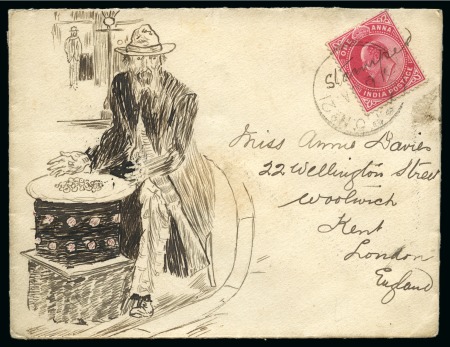 ONE ANNA
INDIA POSTAGE
Miss Annie Davies
22 Wellington Street
Woolwich
Kent
London
England